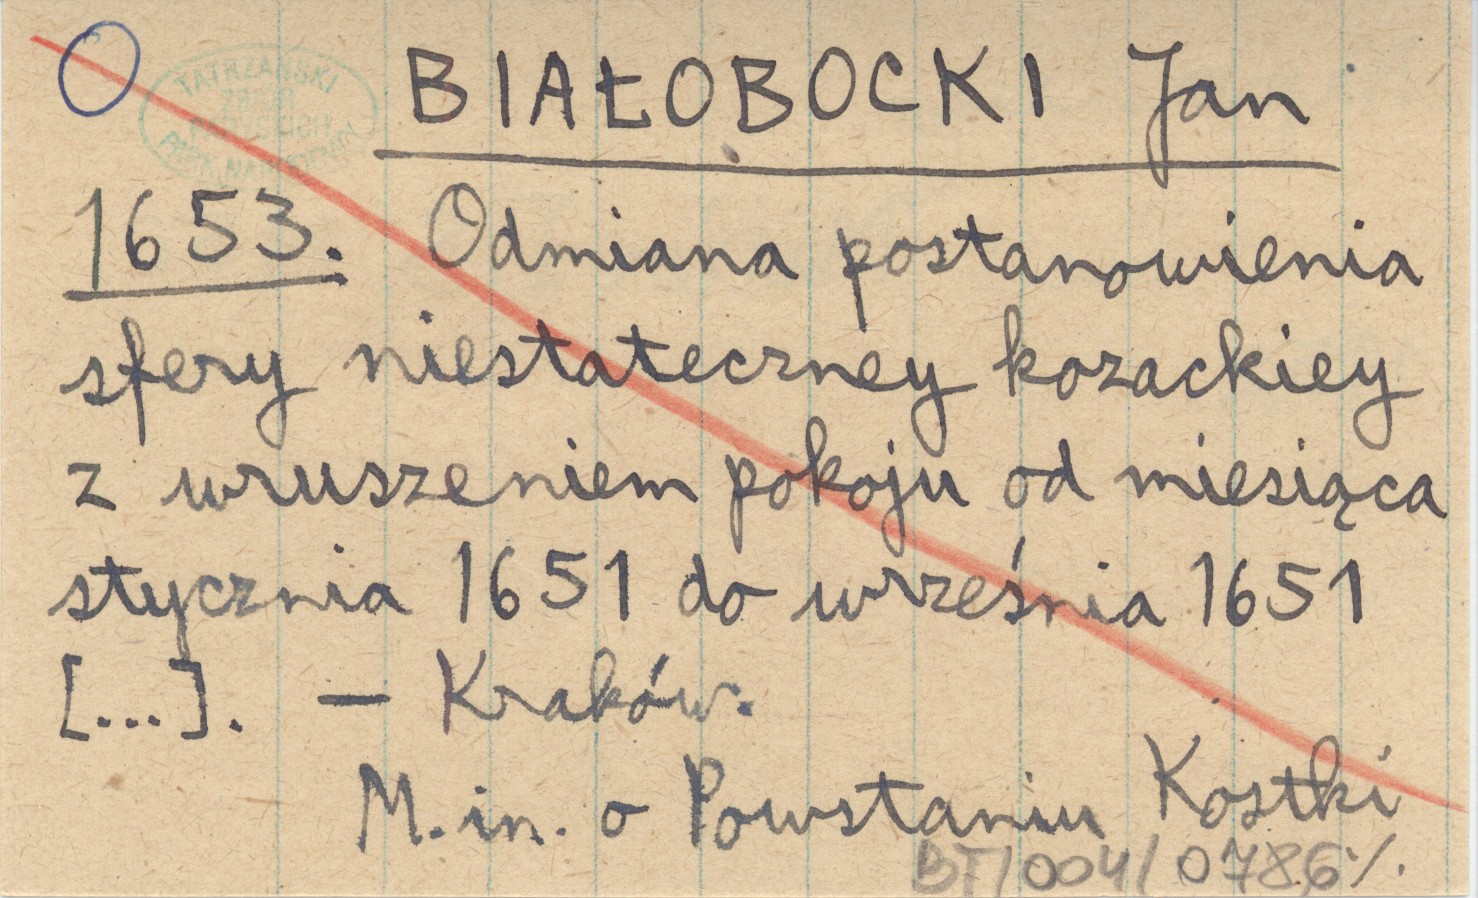 BIAŁOBOCKI Jan
TATRZAŃSKI
PARK NARODOWY
1653. Odmiana postanowienia
sfery niestateczney kozackiey
z wruszeniem pokoju od miesiąca
stycznia 1651 do września 1651
[...]. — Kraków.
M.in. o Powstaniu Kostki
BT/004/0786/.